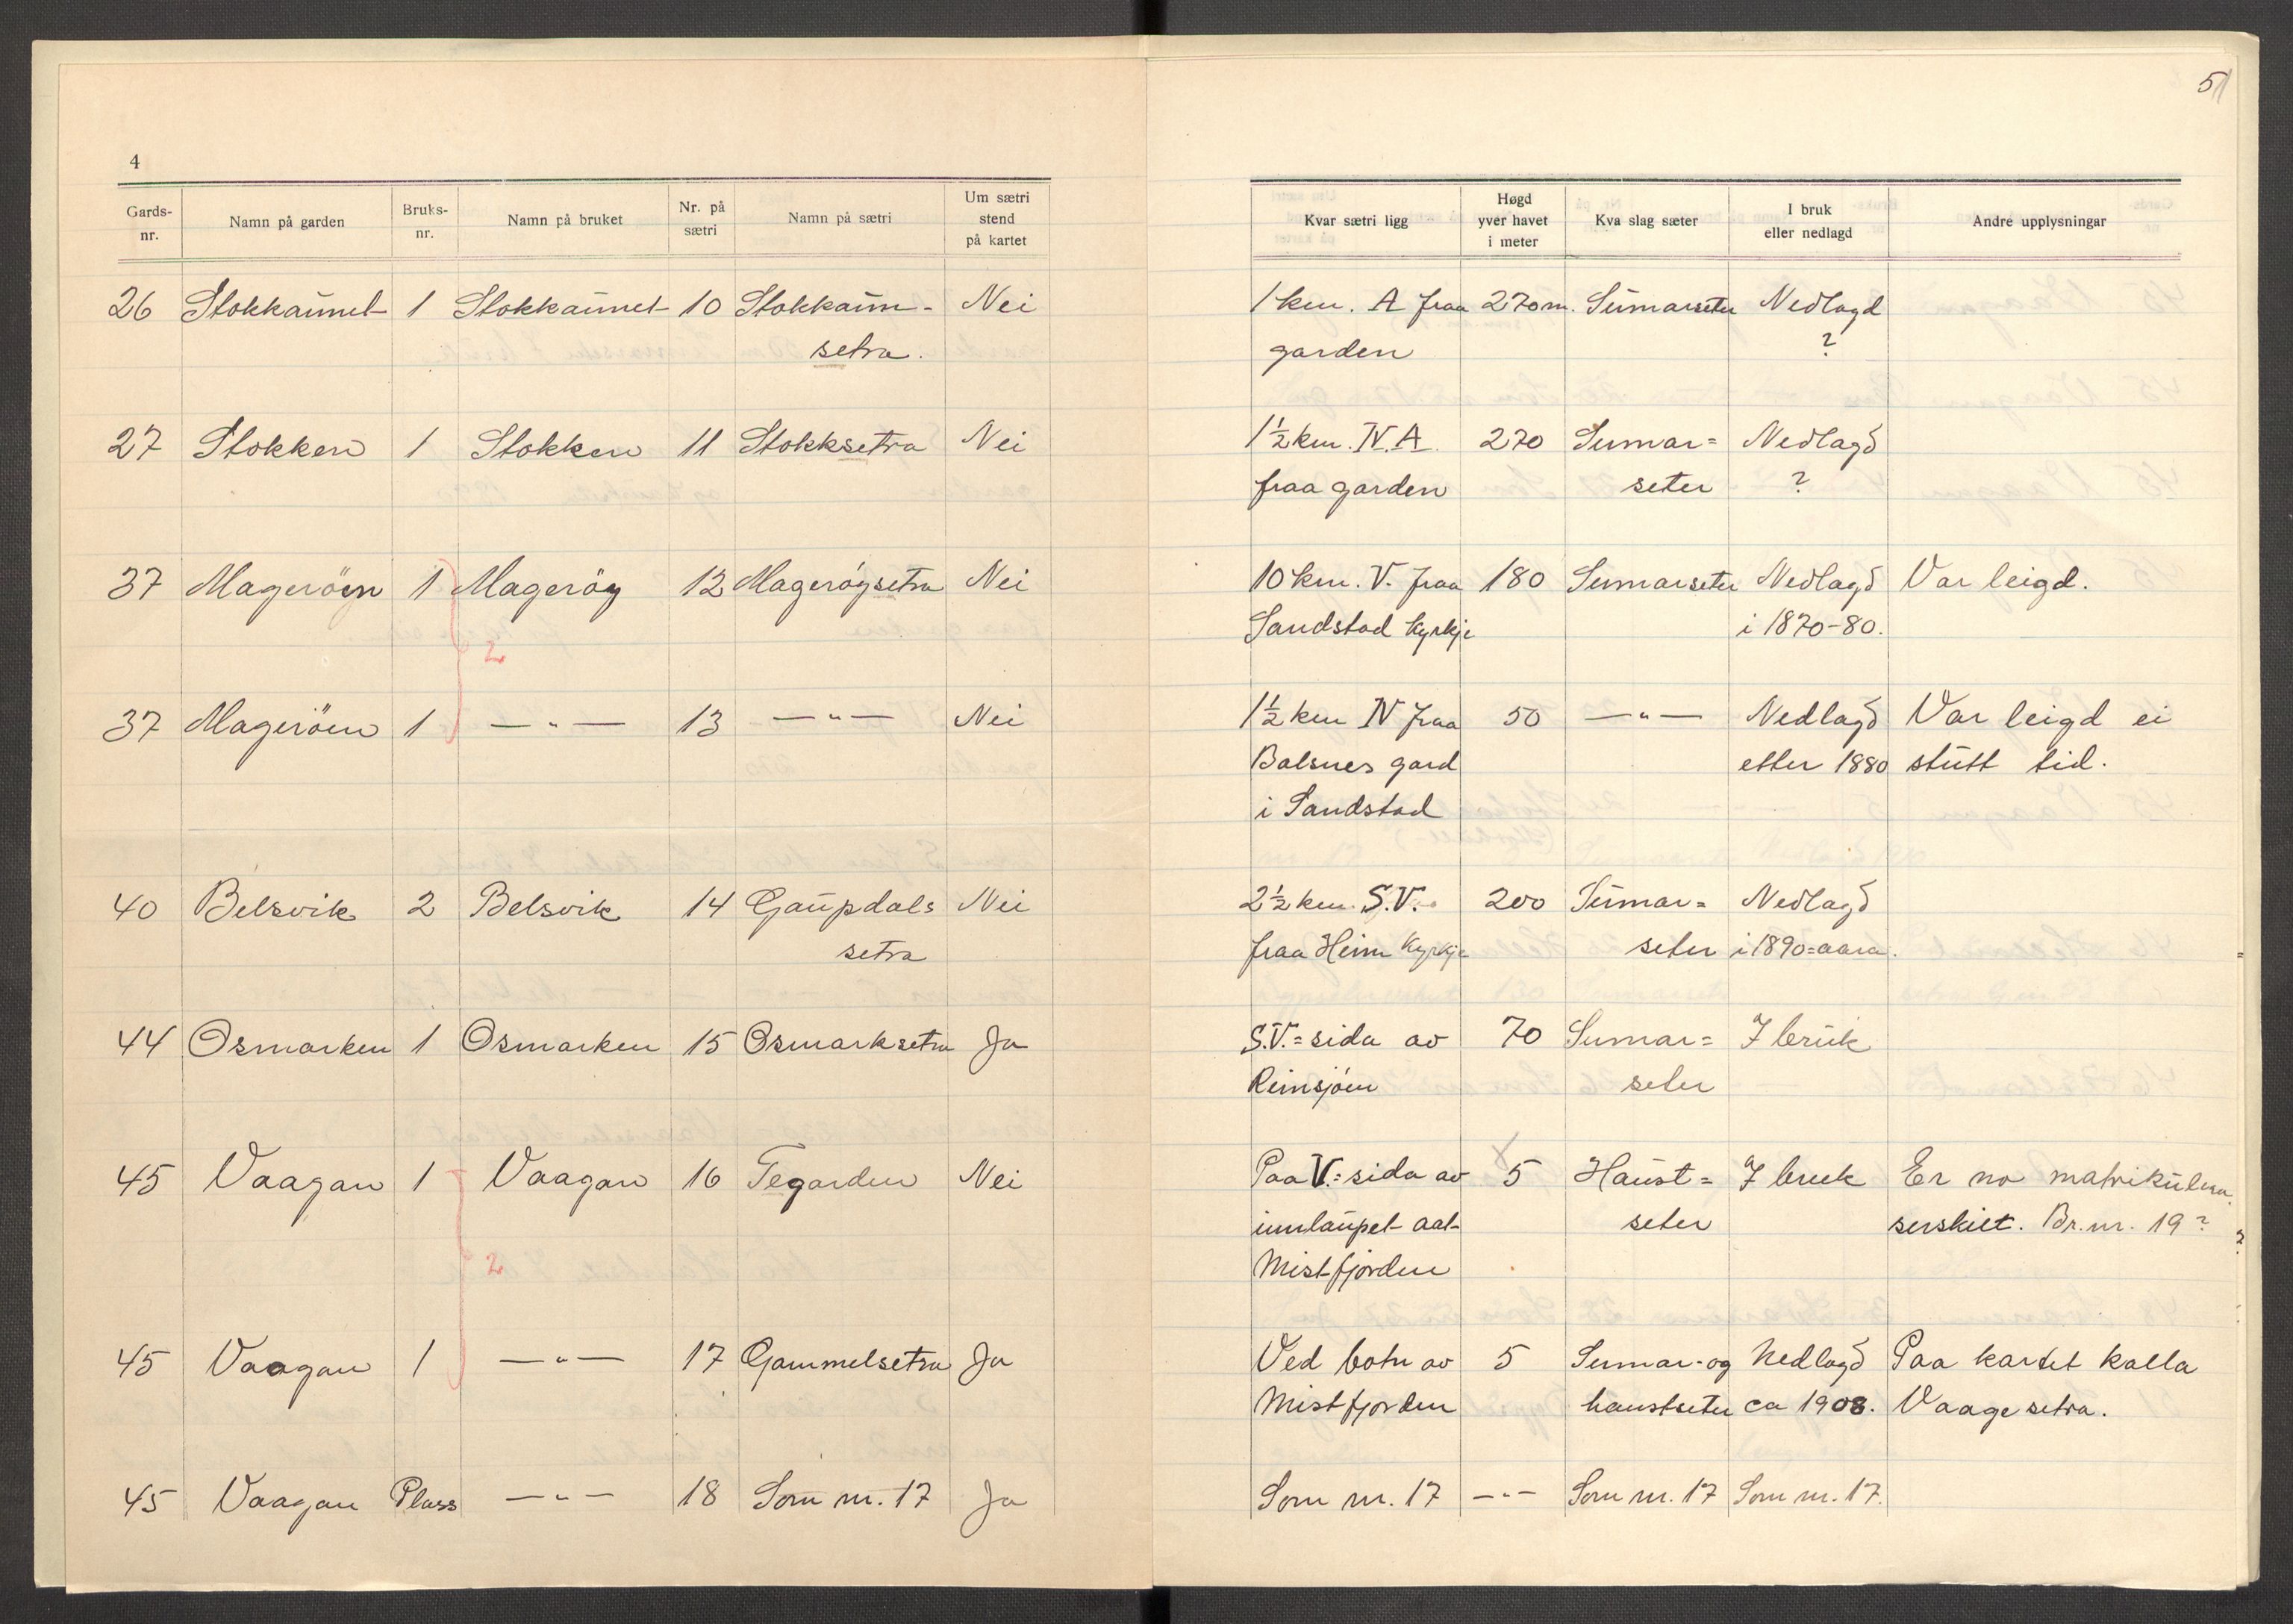 4
Gards-nr. Namn på garden Bruks-nr. Namn på bruket Nr. på sætri Namn på sætri Um sætri stend på kartet
26 Stokkaunet 1 Stokkaunet 10 Stokkaun- Nei
setra.
27 Stokken 1 Stokken 11 Stokksetra Nei
37 Mageröen 1 Mageröy 12 Mageröysetra Nei
2
37 Mageröen 1 —„— 13 —„— Nei
40 Belsvik 2 Belsvik 14 Gaupdals Nei
setra
44 Osmarken 1 Osmarken 15 Osmarksetra Ja
45 Vaagan 1 Vaagan 16 Tegarden Nei
2
45 Vaagan 1 —„— 17 Gammelsetra Ja
45 Vaagan Plass —„— 18 Som nr. 17 Ja
5
Kvar sætri ligg Høgd yver havet i meter Kva slag sæter I bruk eller nedlagd Andre upplysningar
1 km. A fraa 270 m. Sumarseter Nedlagd
garden ?
1½ km. N.A. 270 Sumar= Nedlagd
fraa garden seter ?
10 km. V. fraa 180 Sumarseter Nedlagd Var leigd.
Sandstad Kyrkje i 1870-80.
1½ km N fraa 50 —„— Nedlagd Var leigd ei
Balsnes gard etter 1880 stutt tid.
i Sandstad
2½ km. S.V. 200 Sumar= Nedlagd
fraa Heim Kyrkje seter i 1890=aara.
S.V.=sida av 70 Sumar= I bruk
Reinsjöen seter
Paa V.=sida av 5 Haust= I bruk Er no matrikulera
innlaupet aat seter serskilt. Br.nr. 19?
Mistfjorden
Ved botn av 5 Sumar- og Nedlagd Paa kartet kalla
Mistfjorden haustseter ca 1908. Vaagesetra.
Som nr. 17 —„— Som nr. 17 Som nr. 17.